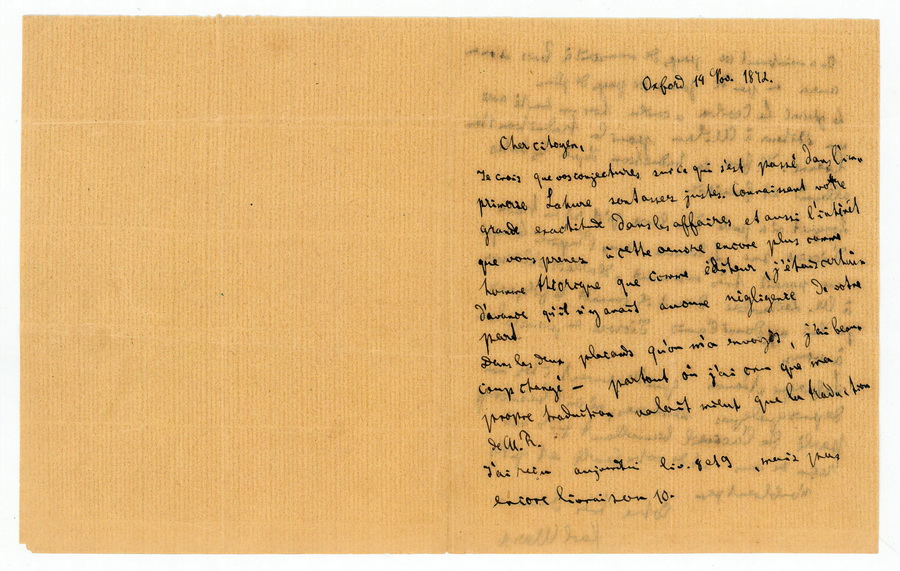 Oxford 19 Nov. 1872.
Cher citoyen,
Je crois que vos conjectures sur ce qui s'est passé dans l'im-
primerie Lahure sont assez justes. Connaissant votre
grande exactitude dans les affaires et aussi l'intérêt
que vous prenez à cette oeuvre encore plus comme
homme théorique que comme éditeur, j'étais certain
d'avance qu'il n'y avait aucune négligence de votre
part.
Dans les deux placards qu'on m'a envoyés, j'ai beau-
coup changé — partout où j'ai cru que ma
propre traduction valait mieux que la traduction
de M. R.
J'ai reçu aujourd'hui liv. 8 et 9, mais pas
encore livraison 10.